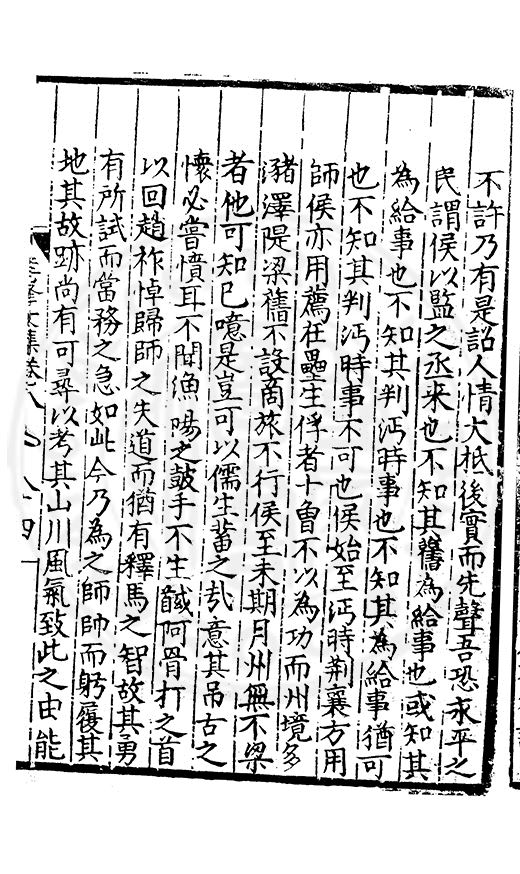 不許乃有是詔人情大抵後實而先聲吾恐求平之
民謂侯以監之丞来也不知其舊為給事也或知其
為給事也不知其判沔時事也不知其為給事猶可
也不知其判沔時事不可也侯始至沔時荆襄方用
師侯亦用薦在壘生俘者十曽不以為功而州境多
瀦澤隄梁舊不設商旅不行侯至未期月州無不梁
者他可知已噫是豈可以儒生蓄之㢤意其吊古之
懷必嘗憤耳不聞漁陽之鼓手不生馘阿骨打之首
以回趙祚悼歸師之失道而猶有釋馬之智故其勇
有所試而當務之急如此今乃為之師帥而躬履其
地其故跡尚有可尋以考其山川風氣致此之由能
文集卷八
八十四